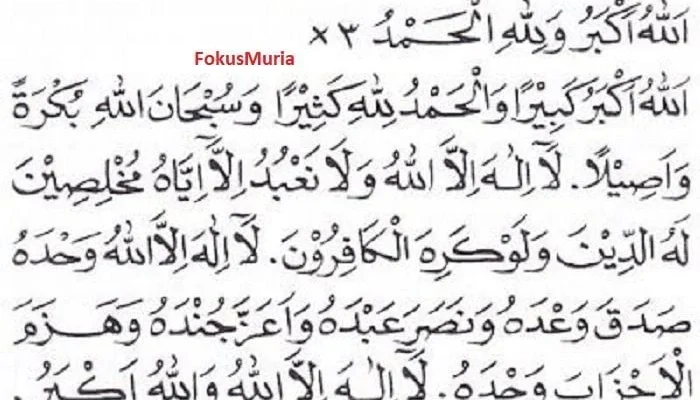 اَللّٰهُ اَكْبَرُ وَلِلّٰهِ الْحَمْدُ ×٣
FokusMuria
اَللّٰهُ اَكْبَرُ كَبِيْرًا وَالْحَمْدُ لِلّٰهِ كَثِيْرًا وَسُبْحَانَ اللّٰهِ بُكْرَةً
وَاَصِيْلًا. لَآ اِلٰهَ اِلَّا اللّٰهُ وَلَا نَعْبُدُ اِلَّآ اِيَّاهُ مُخْلِصِيْنَ
لَهُ الدِّيْنَ وَلَوْ كَرِهَ الْكَافِرُوْنَ. لَآ اِلٰهَ اِلَّا اللّٰهُ وَحْدَهُ
صَدَقَ وَعْدَهُ وَنَصَرَ عَبْدَهُ وَاَعَزَّ جُنْدَهُ وَهَزَمَ
الْاَحْزَابَ وَحْدَهُ. لَآ اِلٰهَ اِلَّا اللّٰهُ وَاللّٰهُ اَكْبَرُ.